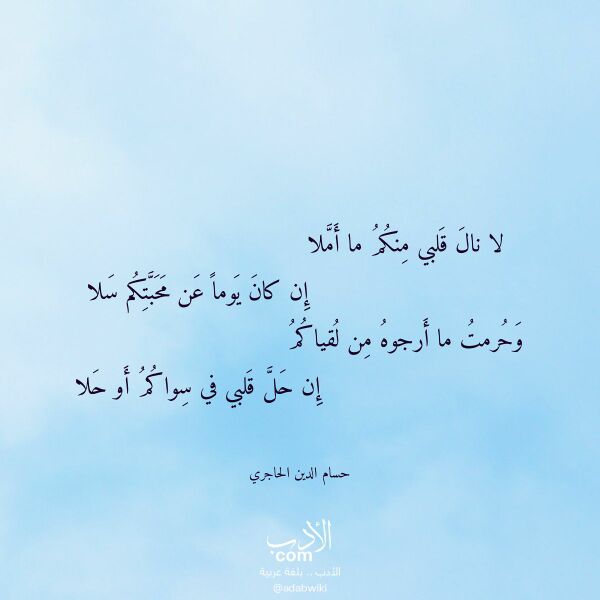 لا نالَ قَلبي مِنكُمُ ما أَمَّلا
إِن كانَ يَوماً عَن مَحَبَّتِكُم سَلا
وَحُرمتُ ما أَرجوهُ مِن لُقياكُمُ
إِن حَلَّ قَلبي في سِواكُمُ أَو حَلا
حسام الدين الحاجري
الأدب
com
الأدب .. بلغة عربية
@adabwiki